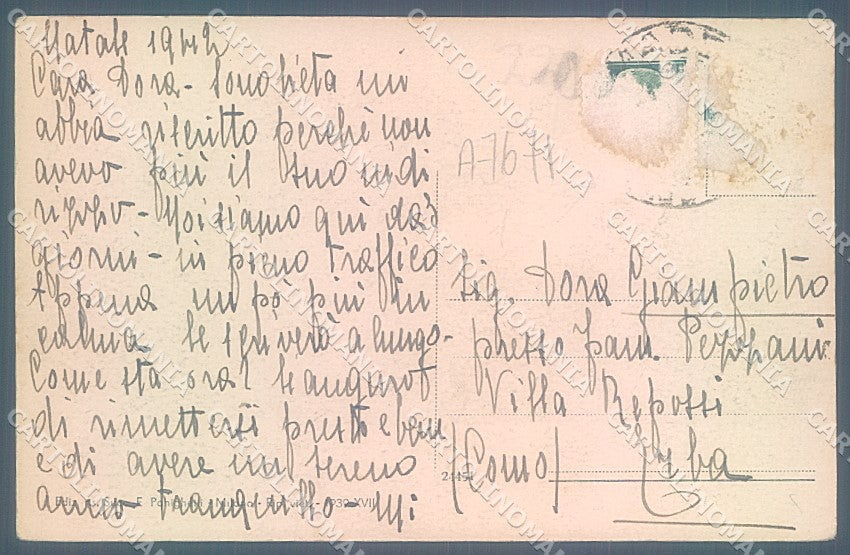 Natale 1942
Cara Dora - Sono lieta mi
abbia riscritto perché non
avevo più il suo indi
rizzo - Noi siamo qui da 3
giorni - in pieno traffico
Appena un po' più in
calma le scriverò a lungo -
Come sta ora? Le auguro
di rimettersi presto e bene
e di avere un sereno
anno tranquillo - Mi
A7677
Sig. Dora Giampietro
presso fam. Pezzani
Villa Repossi
(Como) Erba
CARTOLINOMANIA